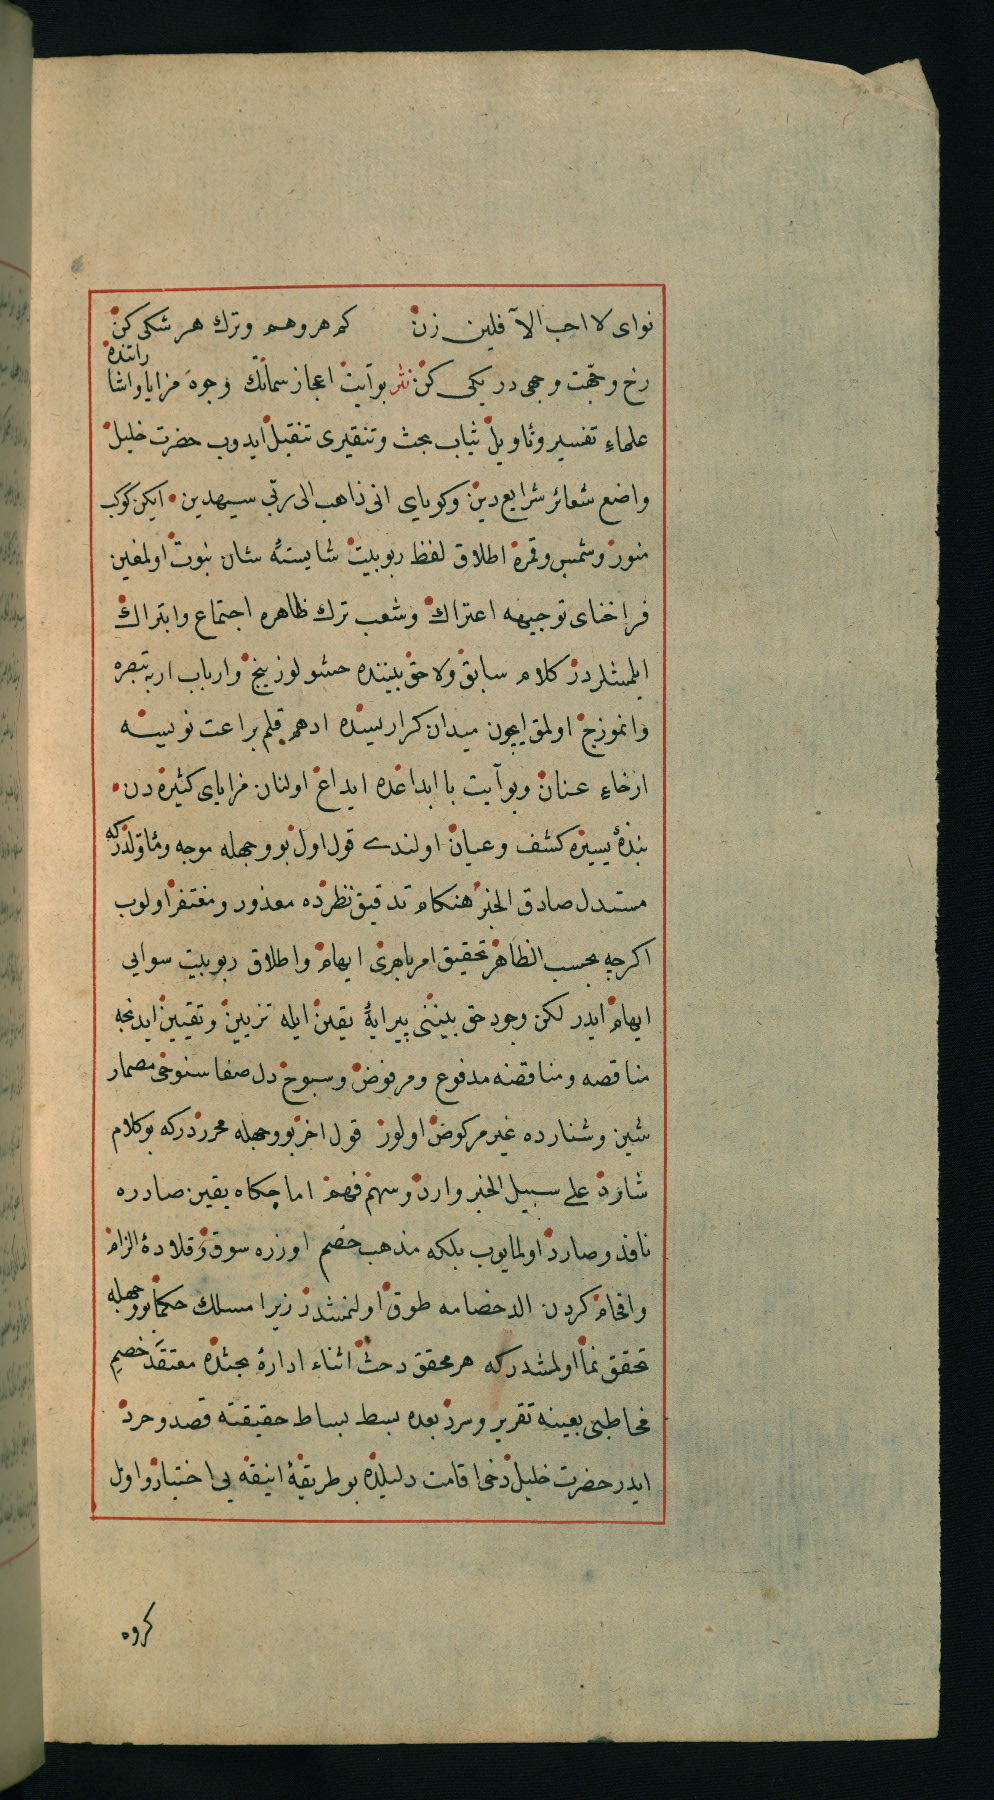 نوای لا احب الآفلین زن کم هر وهم وترك هر شکی کن
رخ وجهت وجهی در یکی کن نثر بو آیت اعجاز سماتك وجوه مزایا واشا
راتنده
علماء تفسیر وتاویل ثیاب بحث وتنقیری تنقبل ایدوب حضرت خلیل
واضع شعائر شرایع دین وکویای انی ذاهب الی ربی سیهدین ایکن کوکب
منور وشمس وقمره اطلاق لفظ ربوبیت شایستهٔ شان نبوت اولمغین
فراخنای توجیهه اعتراك وشعب ترك ظاهره اجتماع وابتراك
ایلمشلردر کلام سابق ولاحق بیننده حشو لوزینج وارباب اربه تبصره
وانموزج اولمق ایچون میدان کراریسنده ادهم قلم براعت نویسنه
ارخاء عنان وبو آیت باابداعده ایداع اولنان مزایای کثیره دن
نبذهٔ یسیره کشف وعیان اولندی قول اول بو وجهله موجه ومأولدرکه
مستدل صادق الخبر هنکام تدقیق نظرده معذور ومغتفر اولوب
اکرچه بحسب الظاهر تحقیق امر باهری ایهام واطلاق ربوبیت سوایی
ایهام ایدر لکن وجود حق بیننی پیرایهٔ یقین ایله تزیین وتقیین ایدنجه
مناقصه ومناقضه مدفوع ومرفوض وسبوح دل صفا سنوحی مضمار
شین وشنارده غیر مرکوض اولور قول اخر بو وجهله محرردرکه بو کلام
شارد علی سبیل الخبر وارد وسهم فهم اماجکاه یقین صادره
نافذ وصارد اولمایوب بلکه مذهب خصم اوزره سوق وقلادهٔ الزام
وافحام کردن الد خصامه طوق اولنمشدر زیرا مسلك حکما بو وجهله
تحقق نما اولمشدرکه هر محقق دحث اثناء ادارهٔ بحثده معتقد خصم
مخاطبی بعینه تقریر وسرد بعده بسط بساط حقیقته قصد وحرد
ایدر حضرت خلیل دخی اقامت دلیلده بو طریقهٔ انیقه یی اختیار واول
کروه